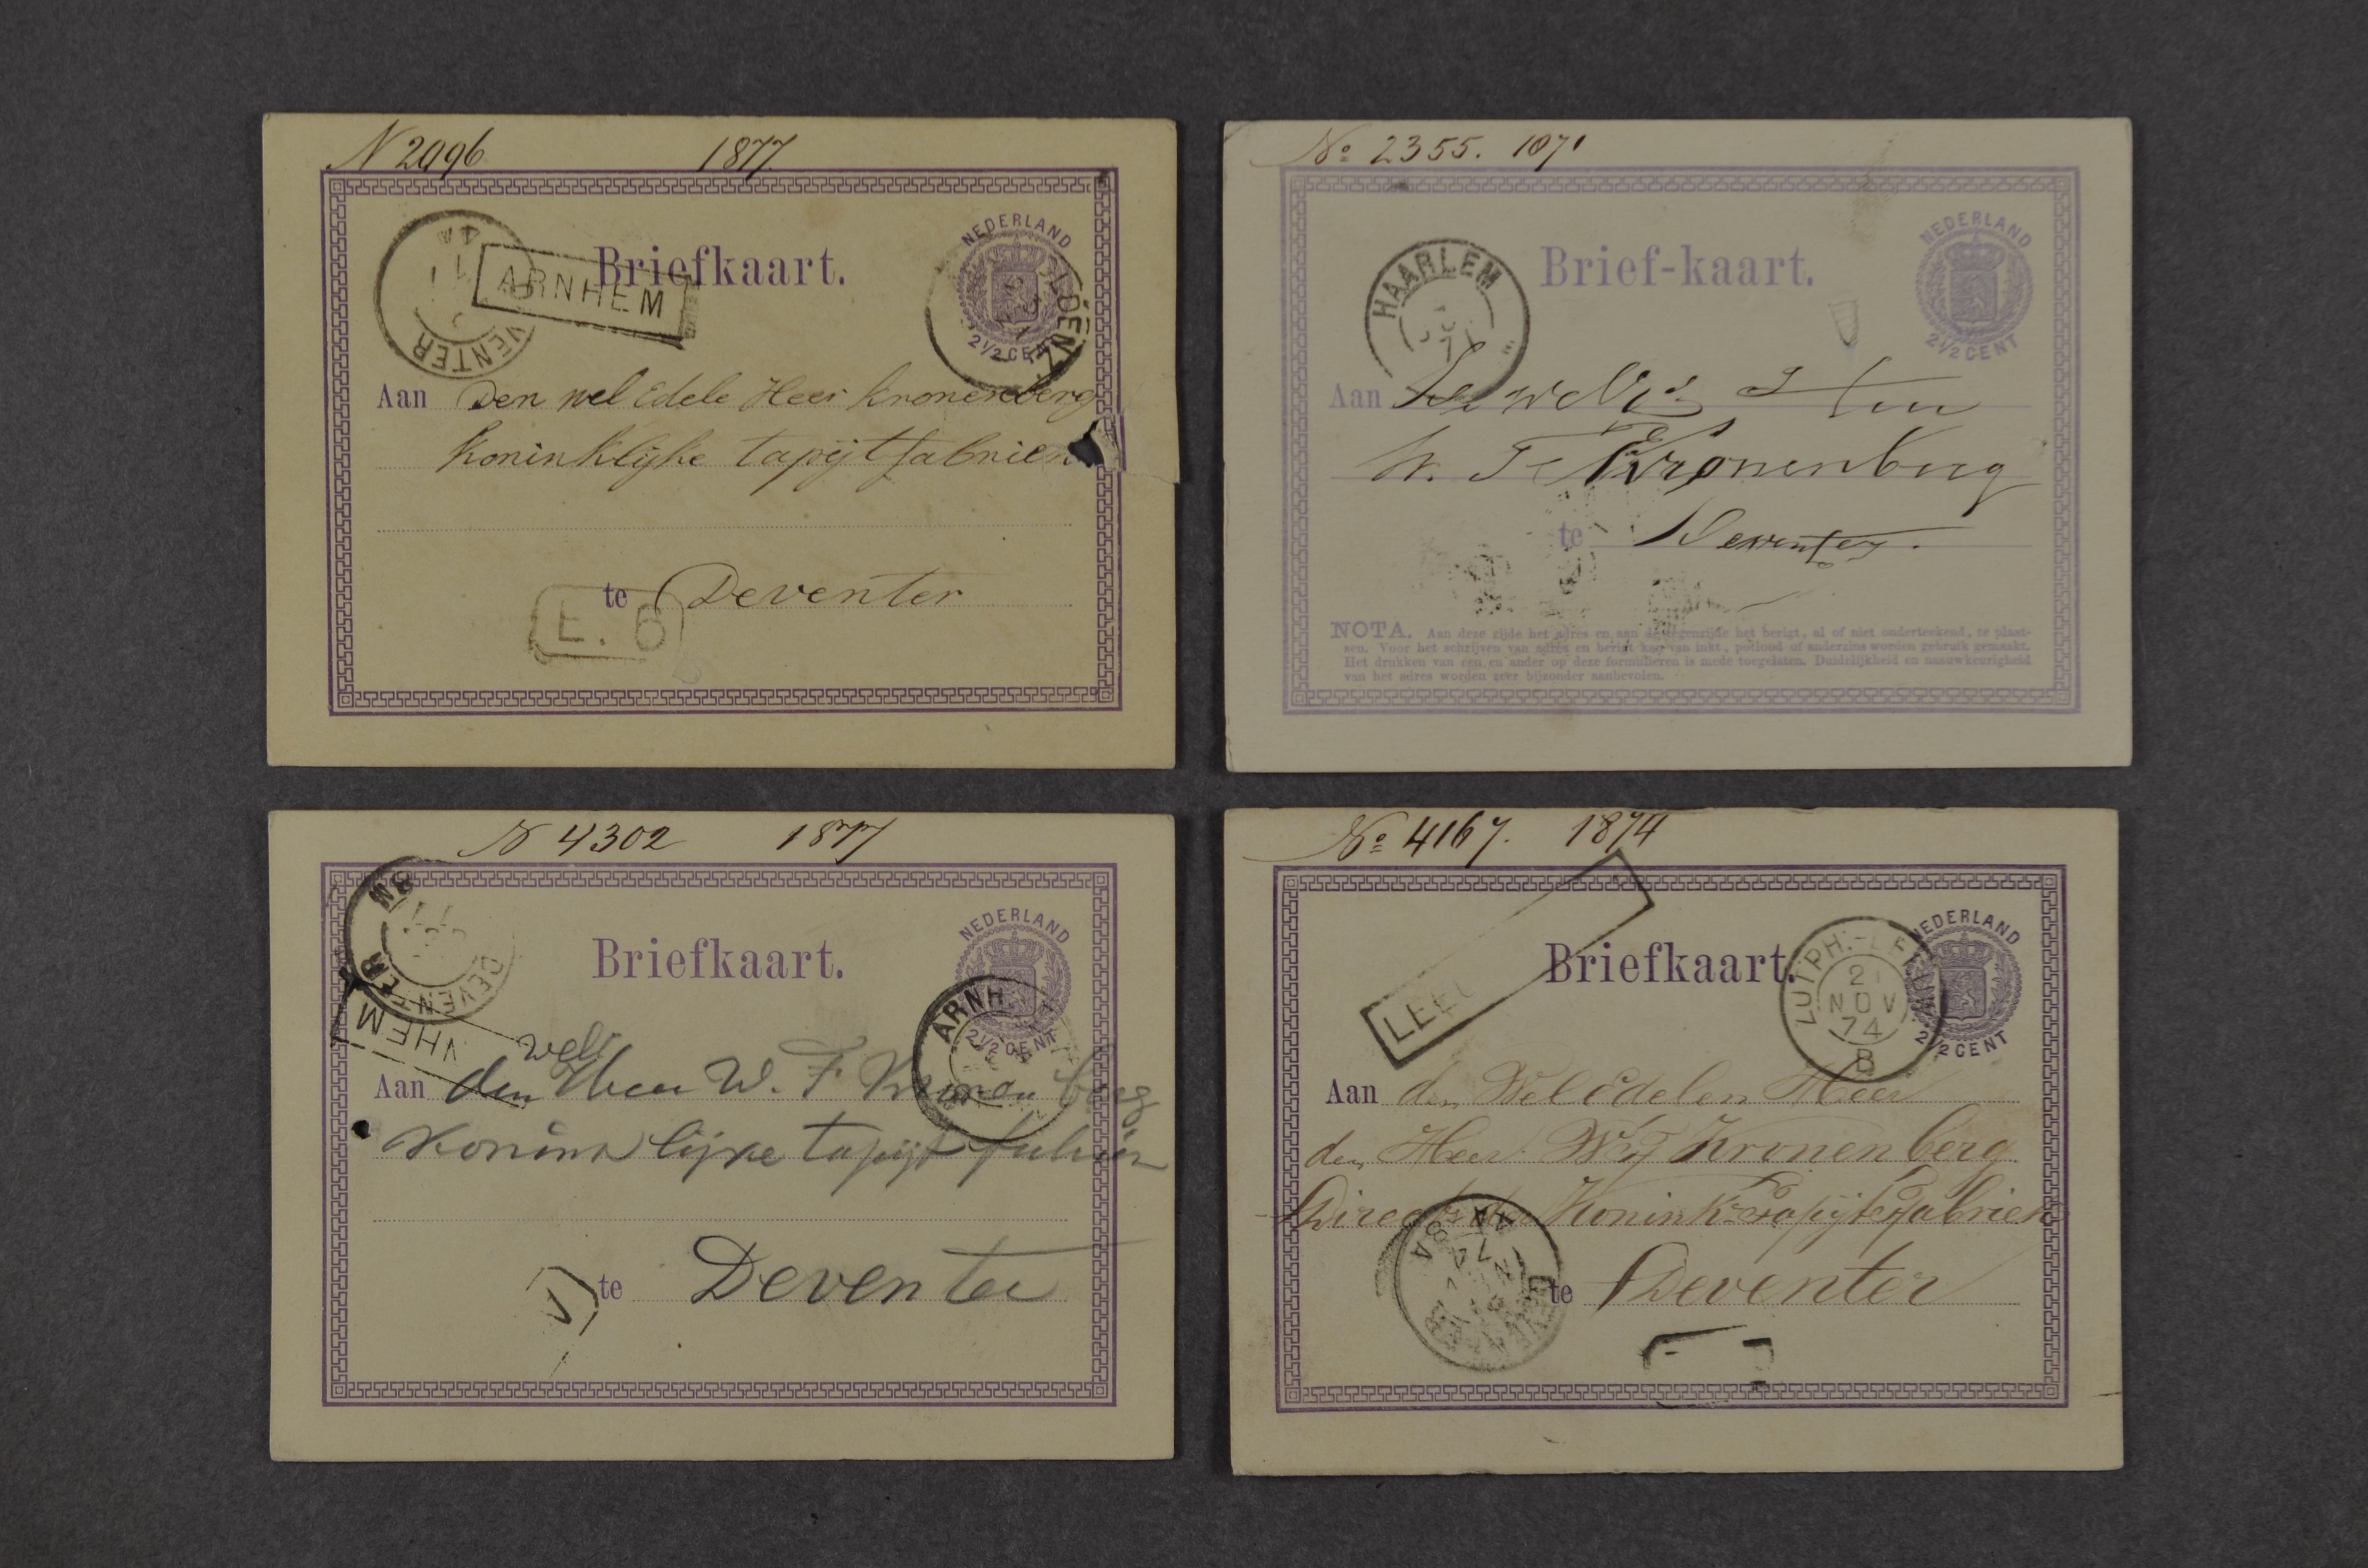 N 2996 1877
Briefkaart.
NEDERLAND
2½ CENT
ARNHEM
VENTER
Aan Den wel Edele Heer Kronenberg
Koninklijke tapijtfabriek
te Deventer
E. 6
No 2355. 1871
Brief-kaart.
NEDERLAND
2½ CENT
HAARLEM
71
Aan
Kronenberg
te Deventer.
NOTA. Aan deze zijde het adres en aan de tegenzijde het berigt, al of niet onderteekend, te plaat-
sen. Voor het schrijven van adres en berigt kan van inkt, potlood of anderzins worden gebruik gemaakt.
Het drukken van een en ander op deze formulieren is mede toegelaten. Duidelijkheid en naauwkeurigheid
van het adres worden zeer bijzonder aanbevolen.
N 4302 1877
Briefkaart.
NEDERLAND
2½ CENT
DEVENTER
NHEM
ARNH
wel
Aan den Heer W. F. Kronenberg
Koninklijke tapijt fabriek
te Deventer
No 4167. 1874
Briefkaart.
NEDERLAND
2½ CENT
LEE
ZUTPH.-LEEUW.
21
NOV
74
B
Aan den Wel Edelen Heer
den Heer W. F. Kronenberg
Direct. der Konink. Tapijtfabriek
te Deventer